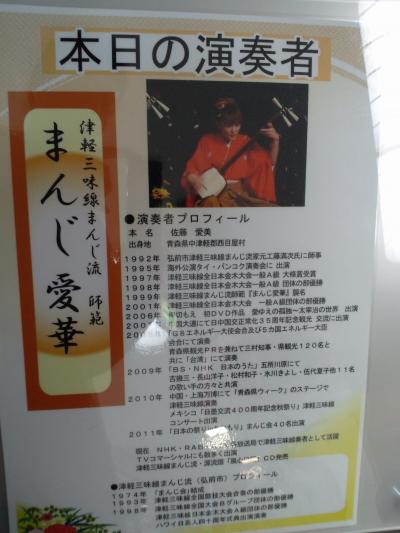 本日の演奏者
津軽三味線まんじ流 師範
まんじ愛華
●演奏者プロフィール
本 名 佐藤 愛美
出身地 青森県中津軽郡西目屋村
1992年 弘前市津軽三味線まんじ流家元工藤満次氏に師事
1995年 海外公演タイ・バンコク演奏会に 出演
1997年 津軽三味線全日本金木大会一般A級 大條賞受賞
1998年 津軽三味線全日本金木大会一般A級 団体の部優勝
1999年 津軽三味線まんじ流師範『まんじ愛華』襲名
2001年 津軽三味線全日本金木大会 一般A級団体の部優勝
2006年 初DVD作品 愛ゆえの孤独~太宰治の世界 出演
中国大連にて日中国交正常化35周年記念観光 交流に出演
「G8エネルギー大使会合及び5カ国エネルギー大臣
会合にて演奏
青森県観光PRを兼ねて三村知事・県観光120名と
共に「台湾」にて演奏
2009年 「BS・NHK 日本のうた」五所川原にて
吉幾三・長山洋子・松村和子・水川きよし・伍代夏子他11名
の歌い手の方々と共演
2010年 中国・上海万博にて「青森県ウィーク」のステージで
津軽三味線演奏
メキシコ「日墨交流400周年記念秋祭り」津軽三味線
コンサート出演
2011年 「日本の祭り まんじ会40名出演
現在 NHK・RAB 放送局で津軽三味線奏者として活躍
TVコマーシャルにも数多く出演
津軽三味線まんじ流・源流譜 CD発売
●津軽三味線まんじ流(弘前市)プロフィール
1974年 「まんじ会」結成
1993年 津軽三味線全国競技大会合奏の部優勝
1998年 津軽三味線全国大会Bグループ団体の部優勝
津軽三味線日本金木大会A級団体の部優勝
ハワイ日系人四十周年式典出演演奏